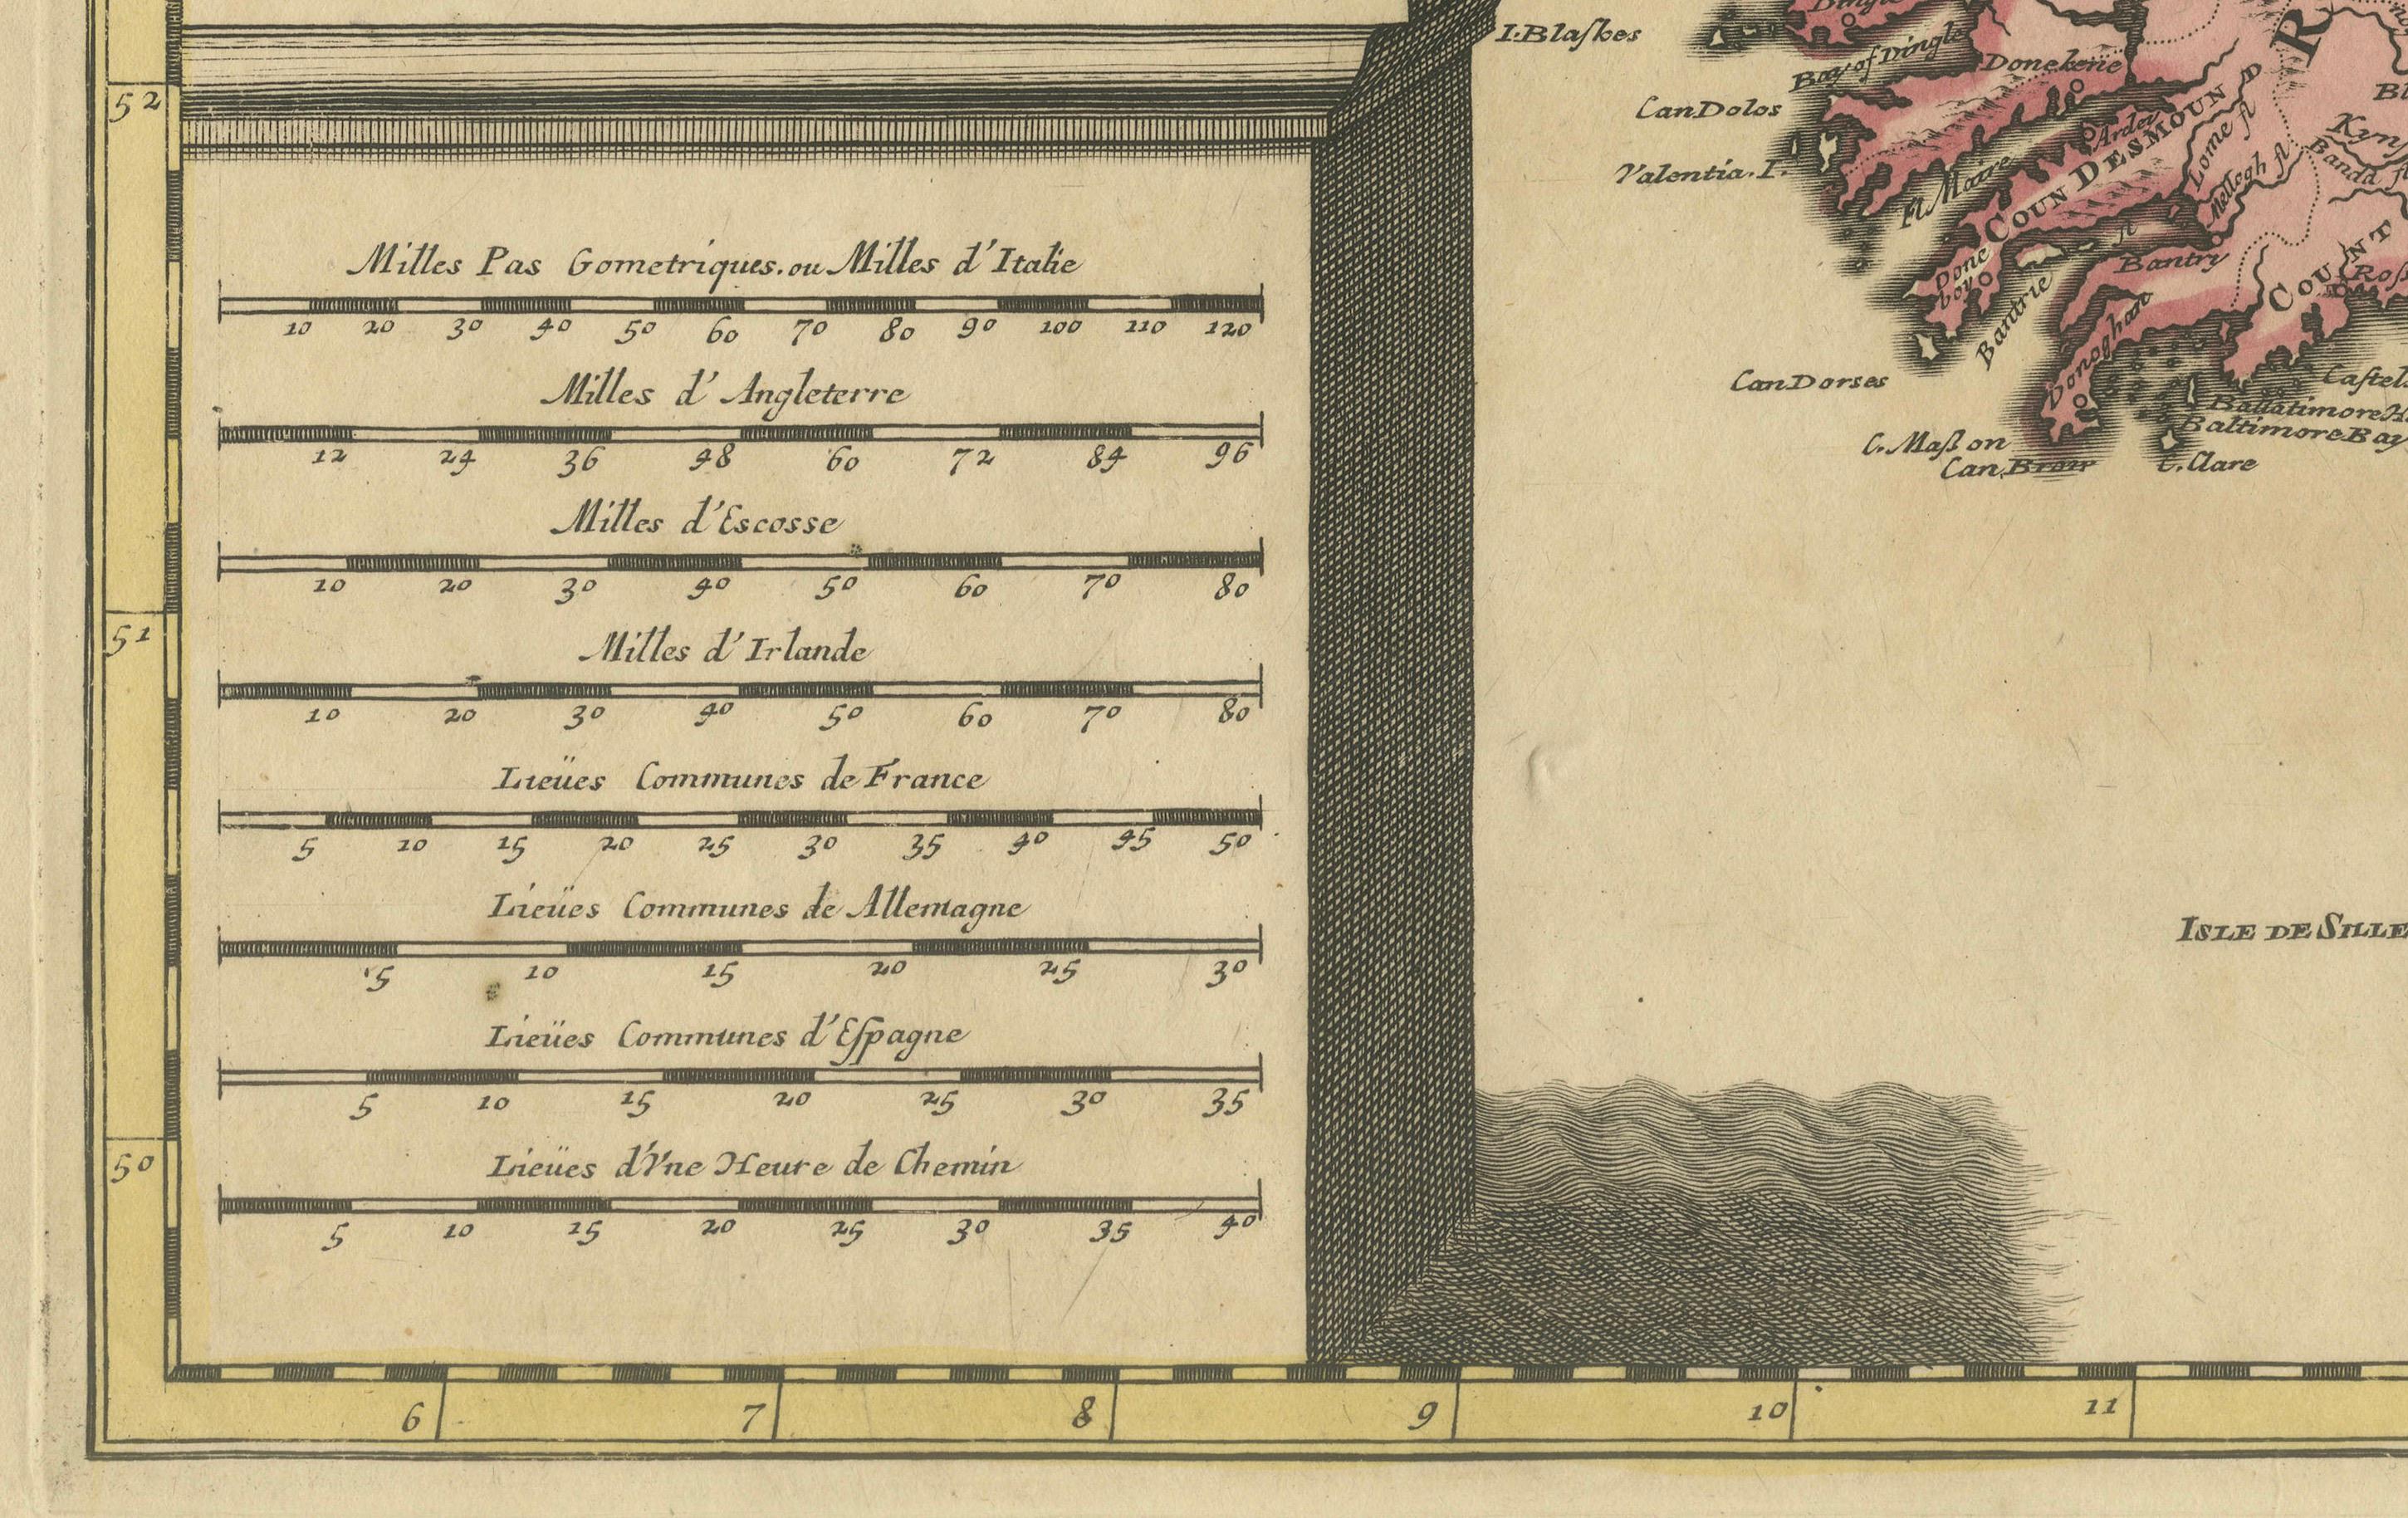 52
51
50
Milles Pas Gometriques. ou Milles d'Italie
10 20 30 40 50 60 70 80 90 100 110 120
Milles d'Angleterre
12 24 36 48 60 72 84 96
Milles d'Escosse
10 20 30 40 50 60 70 80
Milles d'Irlande
10 20 30 40 50 60 70 80
Lieües Communes de France
5 10 15 20 25 30 35 40 45 50
Lieües Communes de Allemagne
5 10 15 20 25 30
Lieües Communes d'Eſpagne
5 10 15 20 25 30 35
Lieües d'Vne Heure de Chemin
5 10 15 20 25 30 35 40
I. Blaſkes
Bay of Dingle
Donekerie
Can Dolos
Valentia. I.
Ardey
Fl Maire
COUN DESMOUN D
Lome fl
Mellegh fl
Bandd fl
R
Done boy
Bantrie
fl
Bantry
COUNT
Donoghan
Can Dorses
C. Maſson
Can Brow
C. Clare
Ballatimore H.
Baltimore Bay
ISLE DE SILLE
6 7 8 9 10 11